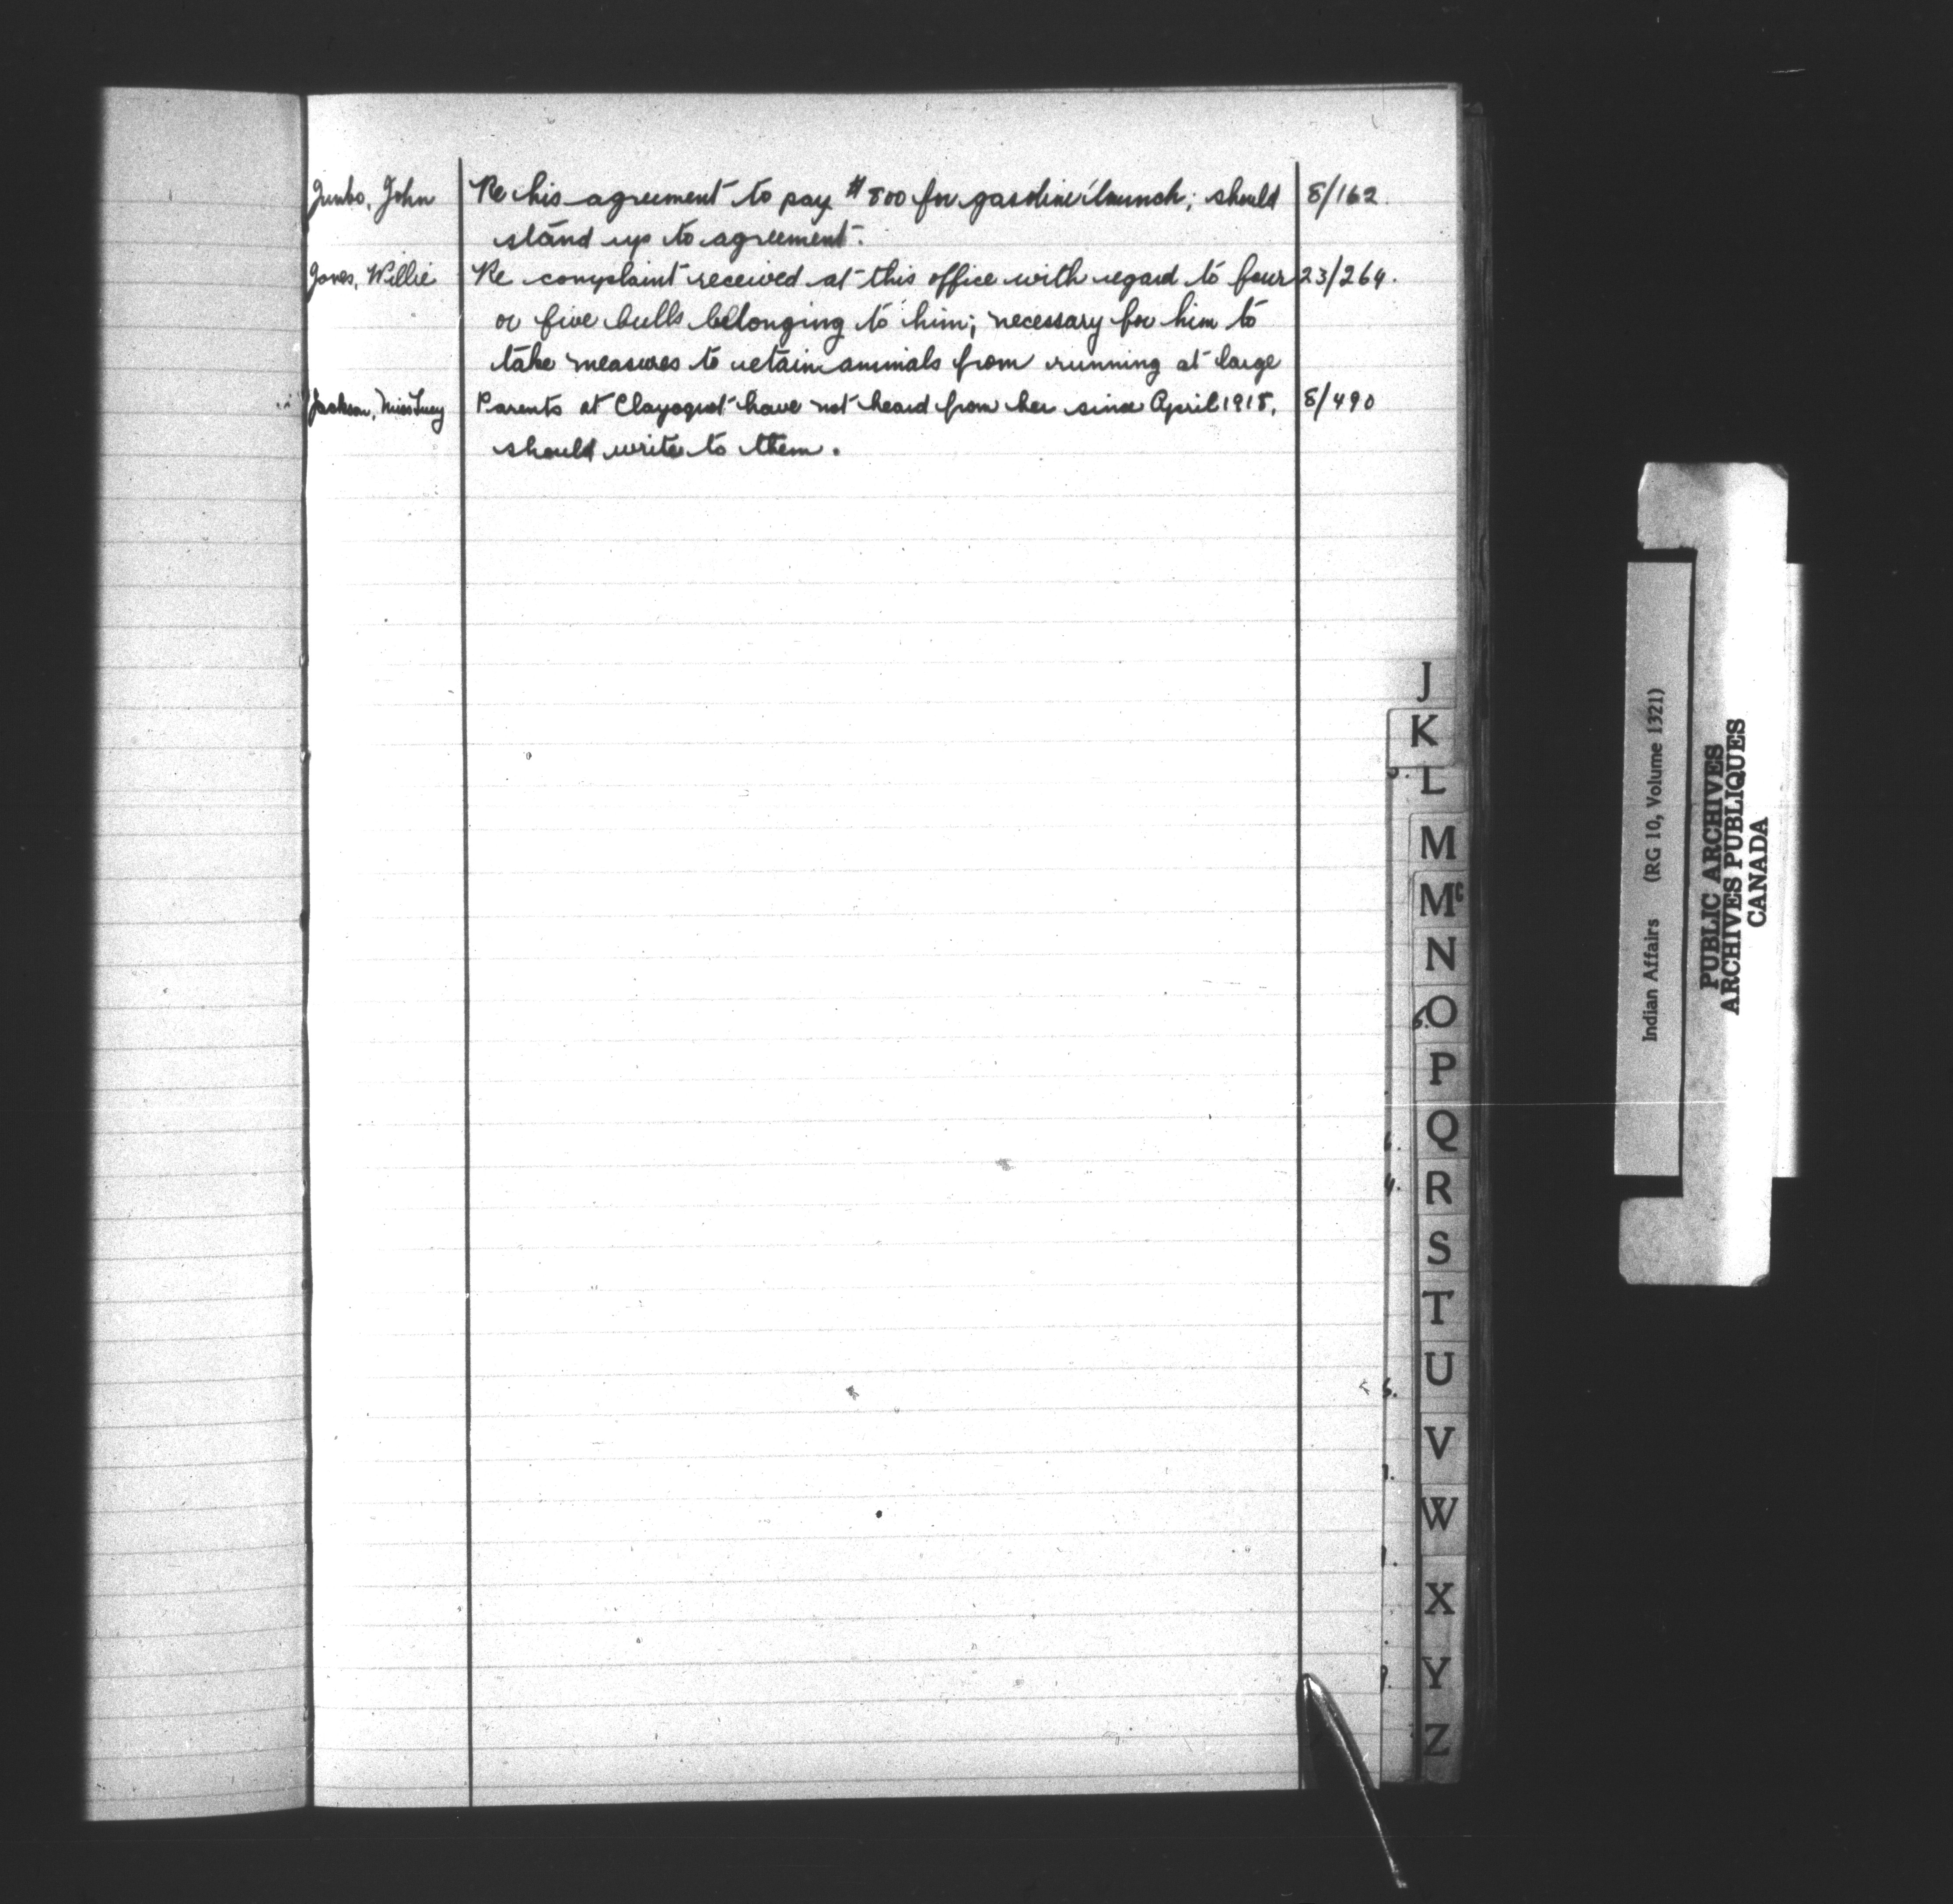 Jumbo, John Re his agreement to pay $800 for gasoline launch; should 8/162.
stand up to agreement.
Jones, Willie Re complaint received at this office with regard to four 23/264.
or five bulls belonging to him; necessary for him to
take measures to retain animals from running at large
Jackson, Miss Lucy Parents at Clayoquot have not heard from her since April 1918, 8/490
should write to them.
J
K
L
M
Mc
N
O
P
Q
R
S
T
U
V
W
X
Y
Z
Indian Affairs (RG 10, Volume 1321)
PUBLIC ARCHIVES
ARCHIVES PUBLIQUES
CANADA